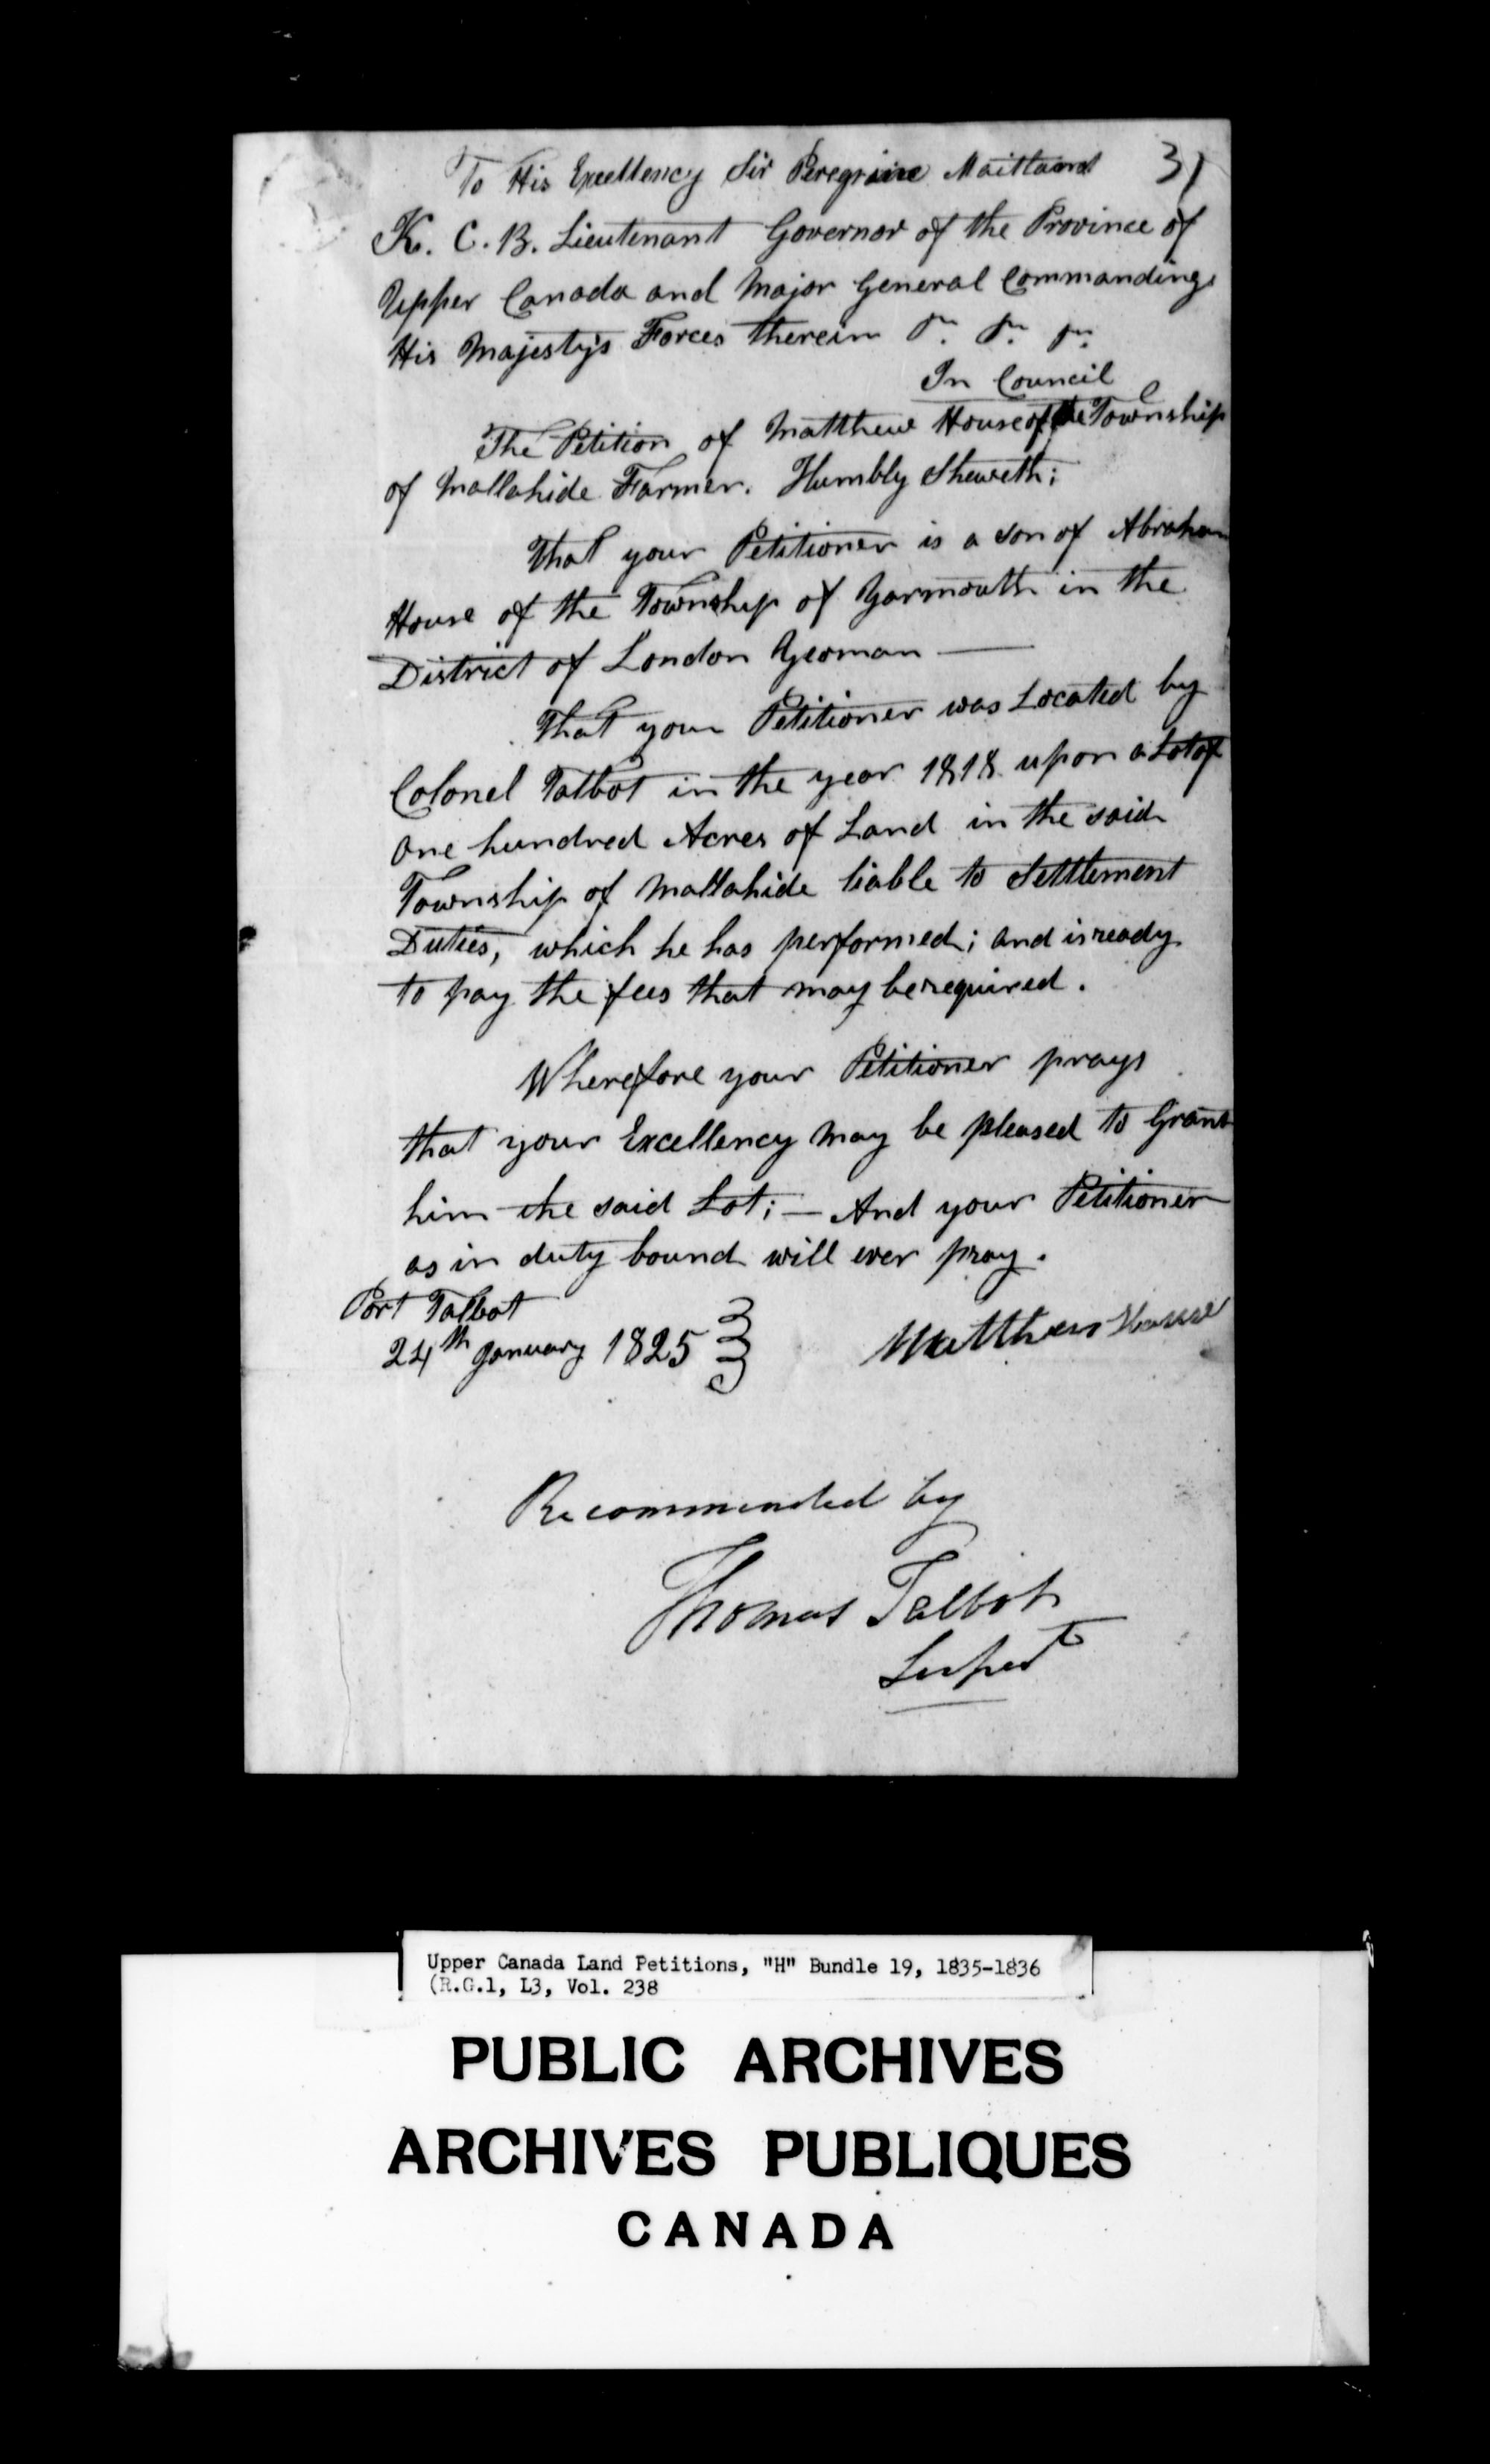 To His Excellency Sir Peregrine Maitland 31
K. C. B. Lieutenant Governor of the Province of
Upper Canada and Major General Commanding
His Majesty's Forces therein &c. &c. &c.
In Council
The Petition of Matthew House of the Township
of Mallahide Farmer. Humbly Sheweth;
That your Petitioner is a son of Abraham
House of the Township of Yarmouth in the
District of London Yeoman —
That your Petitioner was Located by
Colonel Talbot in the year 1818 upon a Lot of
One hundred Acres of Land in the said
Township of Mallahide liable to Settlement
Duties, which he has performed; and is ready
to pay the fees that may be required.
Wherefore your Petitioner prays
that your Excellency may be pleased to Grant
him the said Lot; — And your Petitioner
as in duty bound will ever pray.
Port Talbot
24th January 1825
Matthew House
Recommended by
Thomas Talbot
Supert
Upper Canada Land Petitions, "H" Bundle 19, 1835-1836
(R.G.1, L3, Vol. 238
PUBLIC ARCHIVES
ARCHIVES PUBLIQUES
CANADA